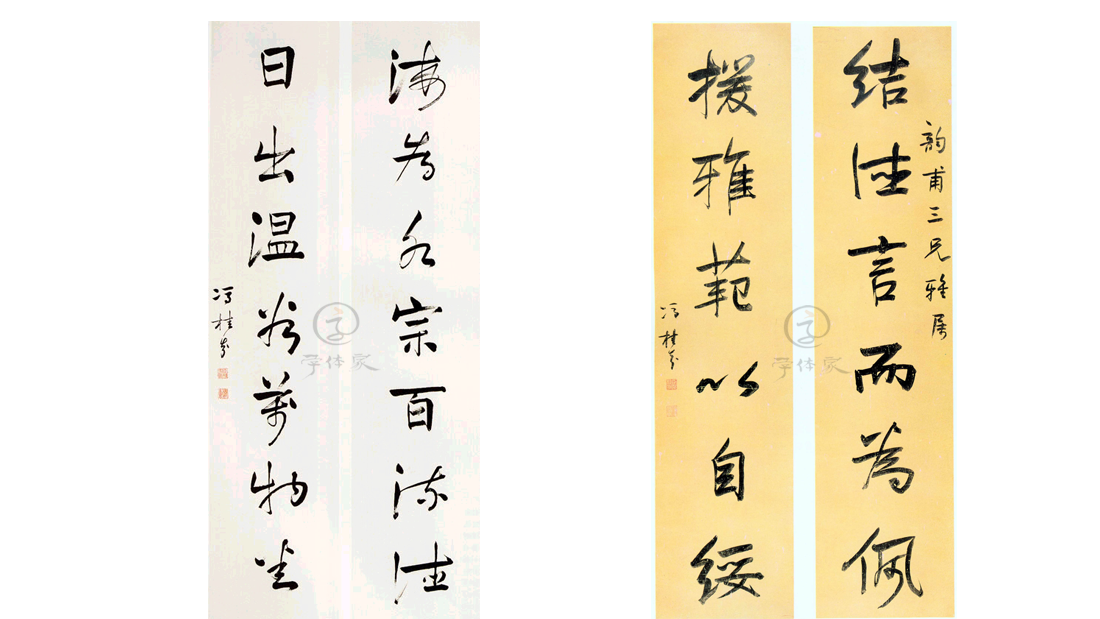 海為水宗百流德
日出温谷萬物生
冯桂芬
字体家
韵甫三兄雅属
结德言而為佩
援雅範以自綏
冯桂芬
字体家